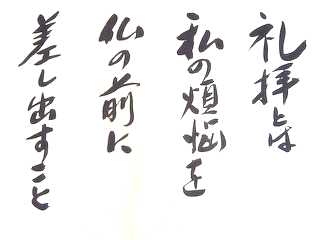 礼拝とは
私の煩悩を
仏の前に
差し出すこと